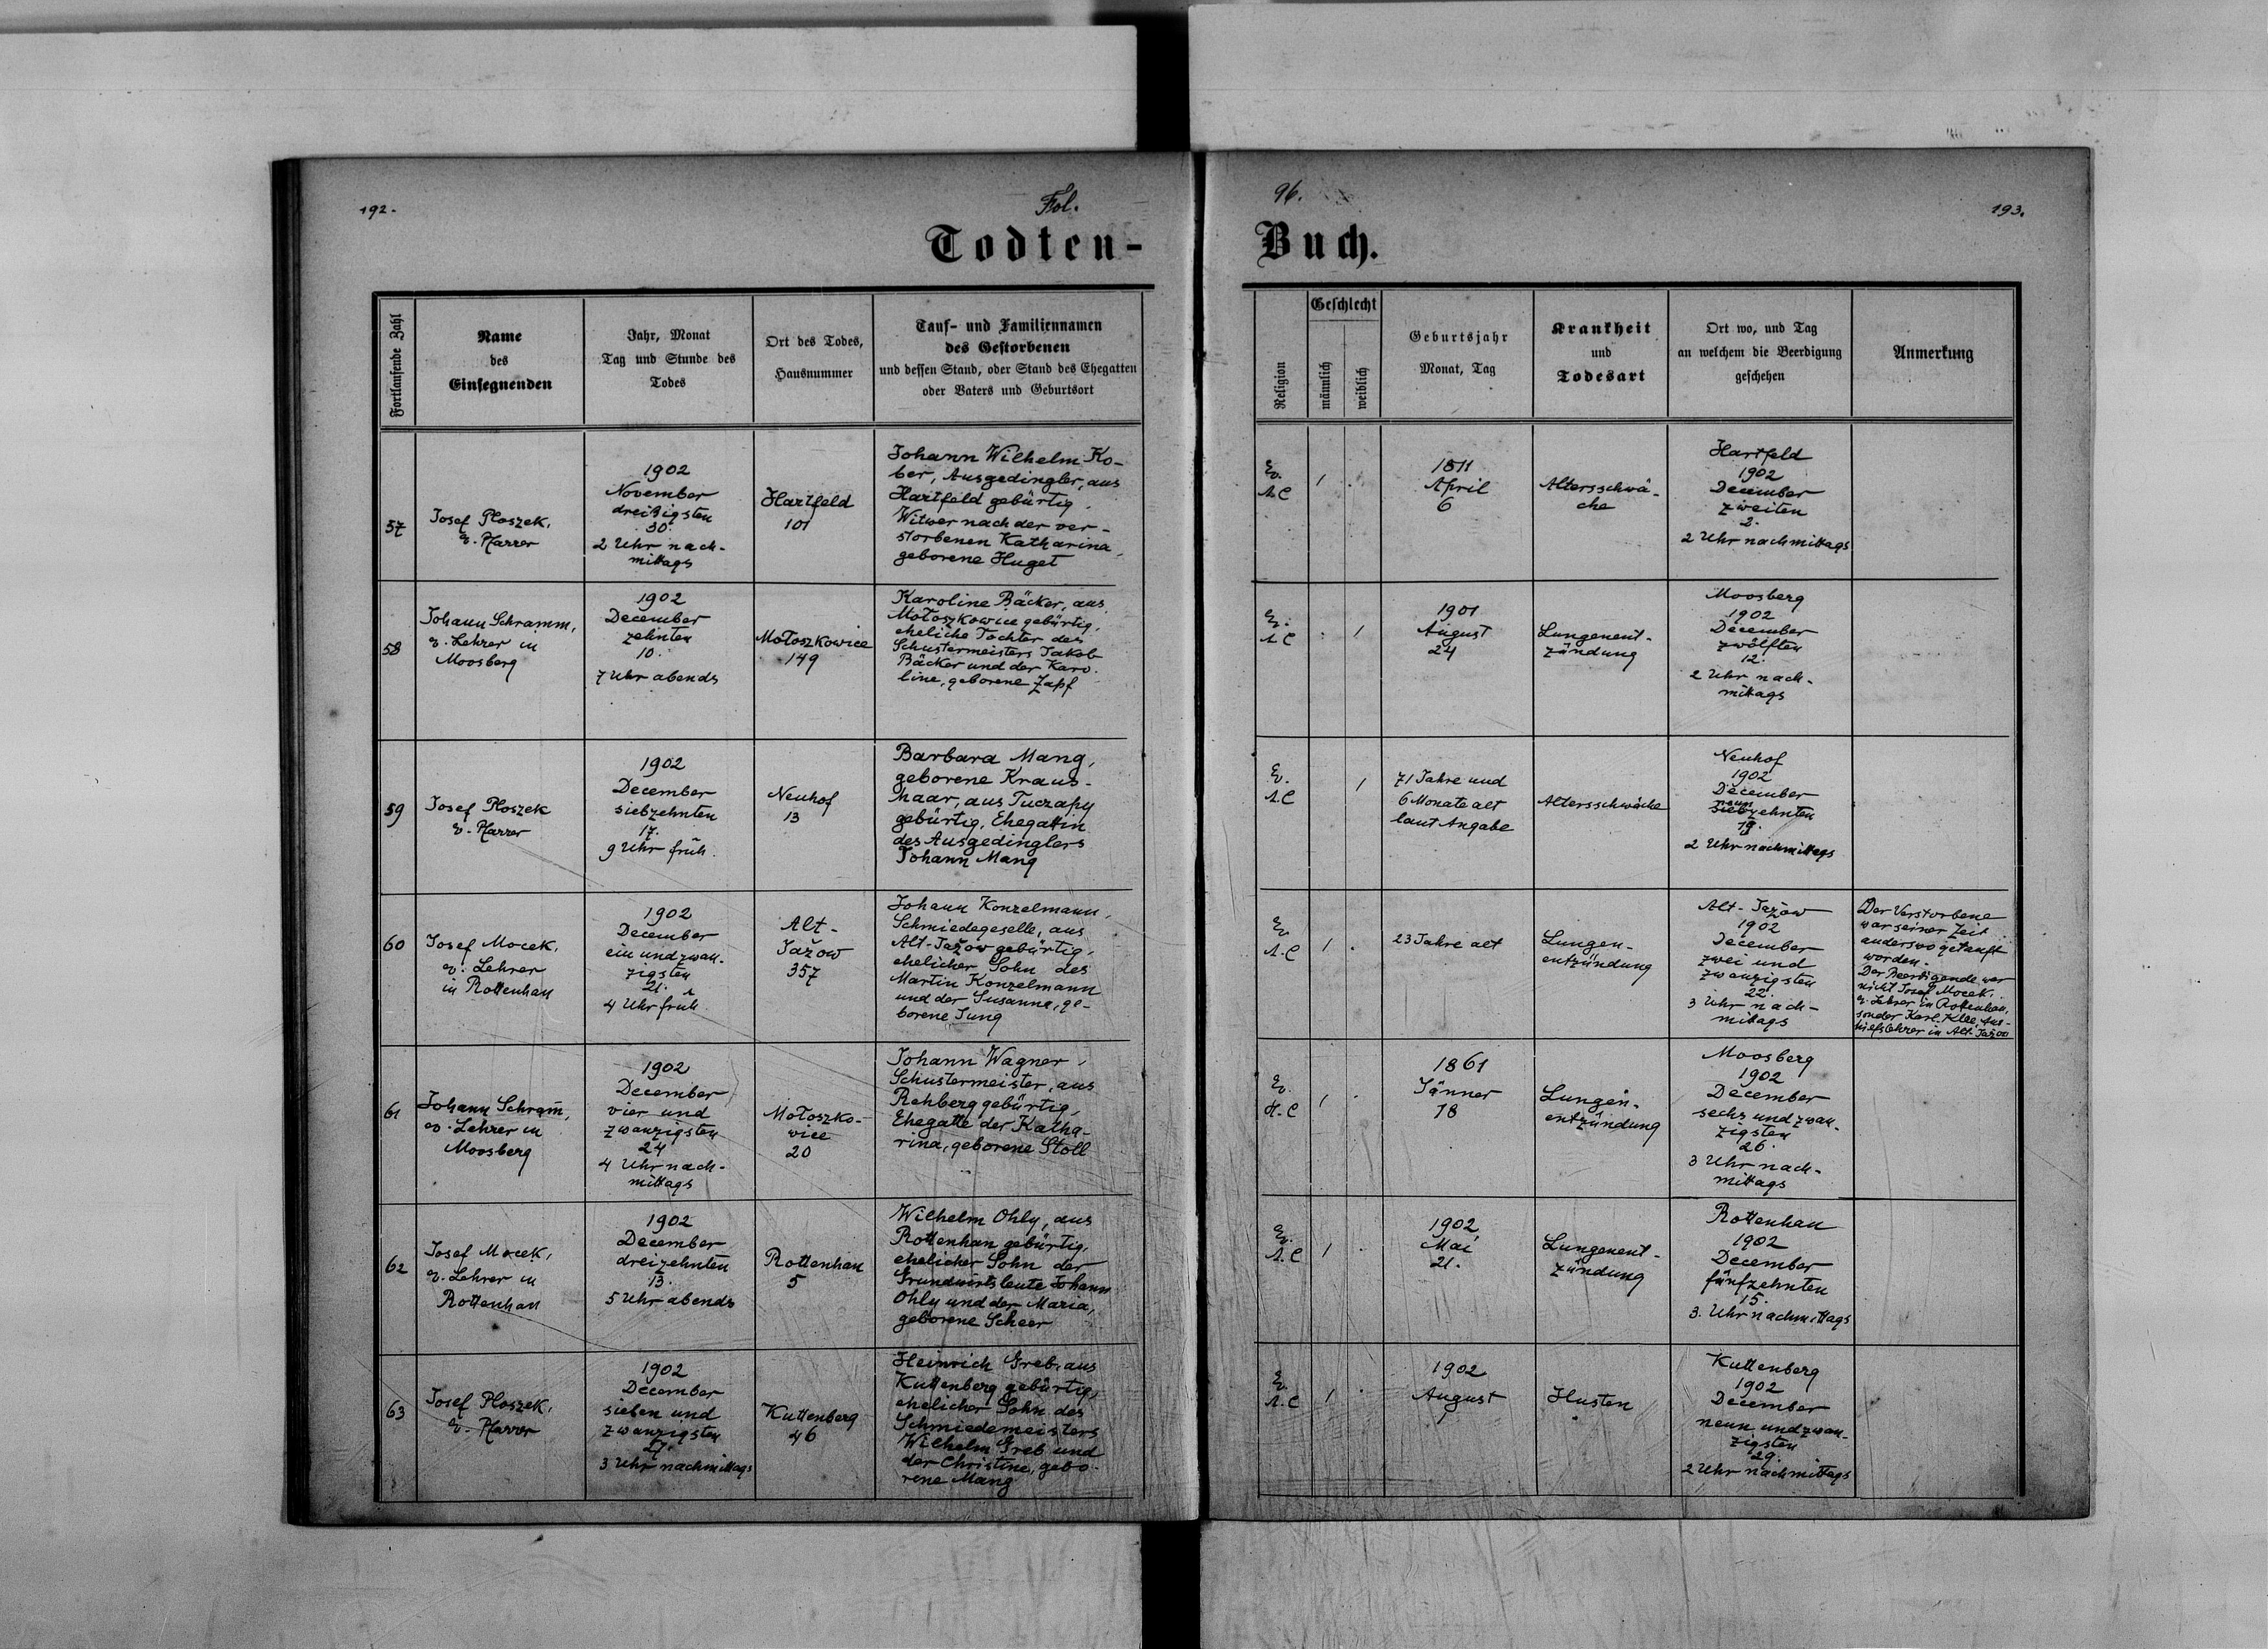 192.
Fol.
96.
193.
Todten-
Buch.
Fortlaufende Zahl
Name
des
Einsegnenden
Jahr, Monat
Tag und Stunde des
Todes
Ort des Todes,
Hausnummer
Tauf- und Familiennamen
des Gestorbenen
und dessen Stand, oder Stand des Ehegatten
oder Vaters und Geburtsort
Religion
Geschlecht
männlich
weiblich
Geburtsjahr
Monat, Tag
Krankheit
und
Todesart
Ort wo, und Tag
an welchem die Beerdigung
geschehen
Anmerkung
57
Josef Ploszek,
ev. Pfarrer
1902
November
dreißigsten
30.
2 Uhr nach-
mittags
Hartfeld
101
Johann Wilhelm Ko-
ber, Ausgedingler, aus
Hartfeld gebürtig,
Witwer nach der ver-
storbenen Katharina,
geborene Huget
Ev.
A.C
1
.
1811
April
6
Altersschwä-
che
Hartfeld
1902
December
zweiten
2.
2 Uhr nachmittags
58
Johann Schramm,
ev. Lehrer in
Moosberg
1902
December
zehnten
10.
7 Uhr abends
Mołoszkowice
149
Karoline Bäcker, aus
Mołoszkowice gebürtig,
eheliche Tochter des
Schustermeisters Jakob
Bäcker und der Karo-
line, geborene Zapf
Ev.
A.C
.
1
1901
August
24
Lungenent-
zündung
Moosberg
1902
December
zwölften
12.
2 Uhr nach-
mittags
59
Josef Ploszek
ev. Pfarrer
1902
December
siebzehnten
17.
9 Uhr früh.
Neuhof
13
Barbara Mang,
geborene Kraus-
haar, aus Tuczapy
gebürtig, Ehegattin
des Ausgedinglers
Johann Mang
Ev.
A.C
1
71 Jahre und
6 Monate alt
laut Angabe
Altersschwäche
Neuhof
1902
December
neun
siebzehnten
19.
2 Uhr nachmittags
60
Josef Mocek,
ev. Lehrer
in Rottenhan
1902
December
ein und zwan-
zigsten
21.
4 Uhr früh
Alt-
Jažow
357
Johann Konzelmann,
Schmiedegeselle, aus
Alt-Jažow gebürtig,
ehelicher Sohn des
Martin Konzelmann
und der Susanna, ge-
borene Jung
Ev.
A.C
1
.
23 Jahre alt
Lungen-
entzündung
Alt-Jažow
1902
December
zwei und
zwanzigsten
22.
3 Uhr nach-
mittags
Der Verstorbene
war seiner Zeit
anderswo getauft
worden.
Der Beerdigende war
nicht Josef Mocek,
ev. Lehrer in Rottenhan,
sonder Karl Klee, Aus-
hilfslehrer in Alt-Jažow
61
Johann Schram̄,
ev. Lehrer in
Moosberg
1902
December
vier und
zwanzigsten
24
4 Uhr nach-
mittags
Mołoszko-
wice
20
Johann Wagner,
Schustermeister, aus
Rehberg gebürtig,
Ehegatte der Katha-
rina, geborene Stoll
Ev.
H.C
1
.
1861
Jänner
18
Lungen-
entzündung
Moosberg
1902
December
sechs und zwan-
zigsten
26.
3 Uhr nach-
mittags
62
Josef Mocek,
ev. Lehrer in
Rottenhan
1902
December
dreizehnten
13.
5 Uhr abends
Rottenhan
5
Wilhelm Ohly, aus
Rottenhan gebürtig,
ehelicher Sohn der
Grundwirtsleute Johann
Ohly und der Maria,
geborene Scheer
Ev.
A.C
1
.
1902
Mai
21.
Lungenent-
zündung
Rottenhan
1902
December
fünfzehnten
15.
3. Uhr nachmittags
63
Josef Ploszek,
ev. Pfarrer
1902
December
sieben und
zwanzigsten
27.
3 Uhr nachmittags
Kuttenberg
46
Heinrich Greb, aus
Kuttenberg gebürtig,
ehelicher Sohn des
Schmiedemeisters
Wilhelm Greb und
der Christine, gebo-
rene Mang
Ev.
A.C
1
.
1902
August
1
Husten
Kuttenberg
1902
December
neun und zwan-
zigsten
29.
2 Uhr nachmittags